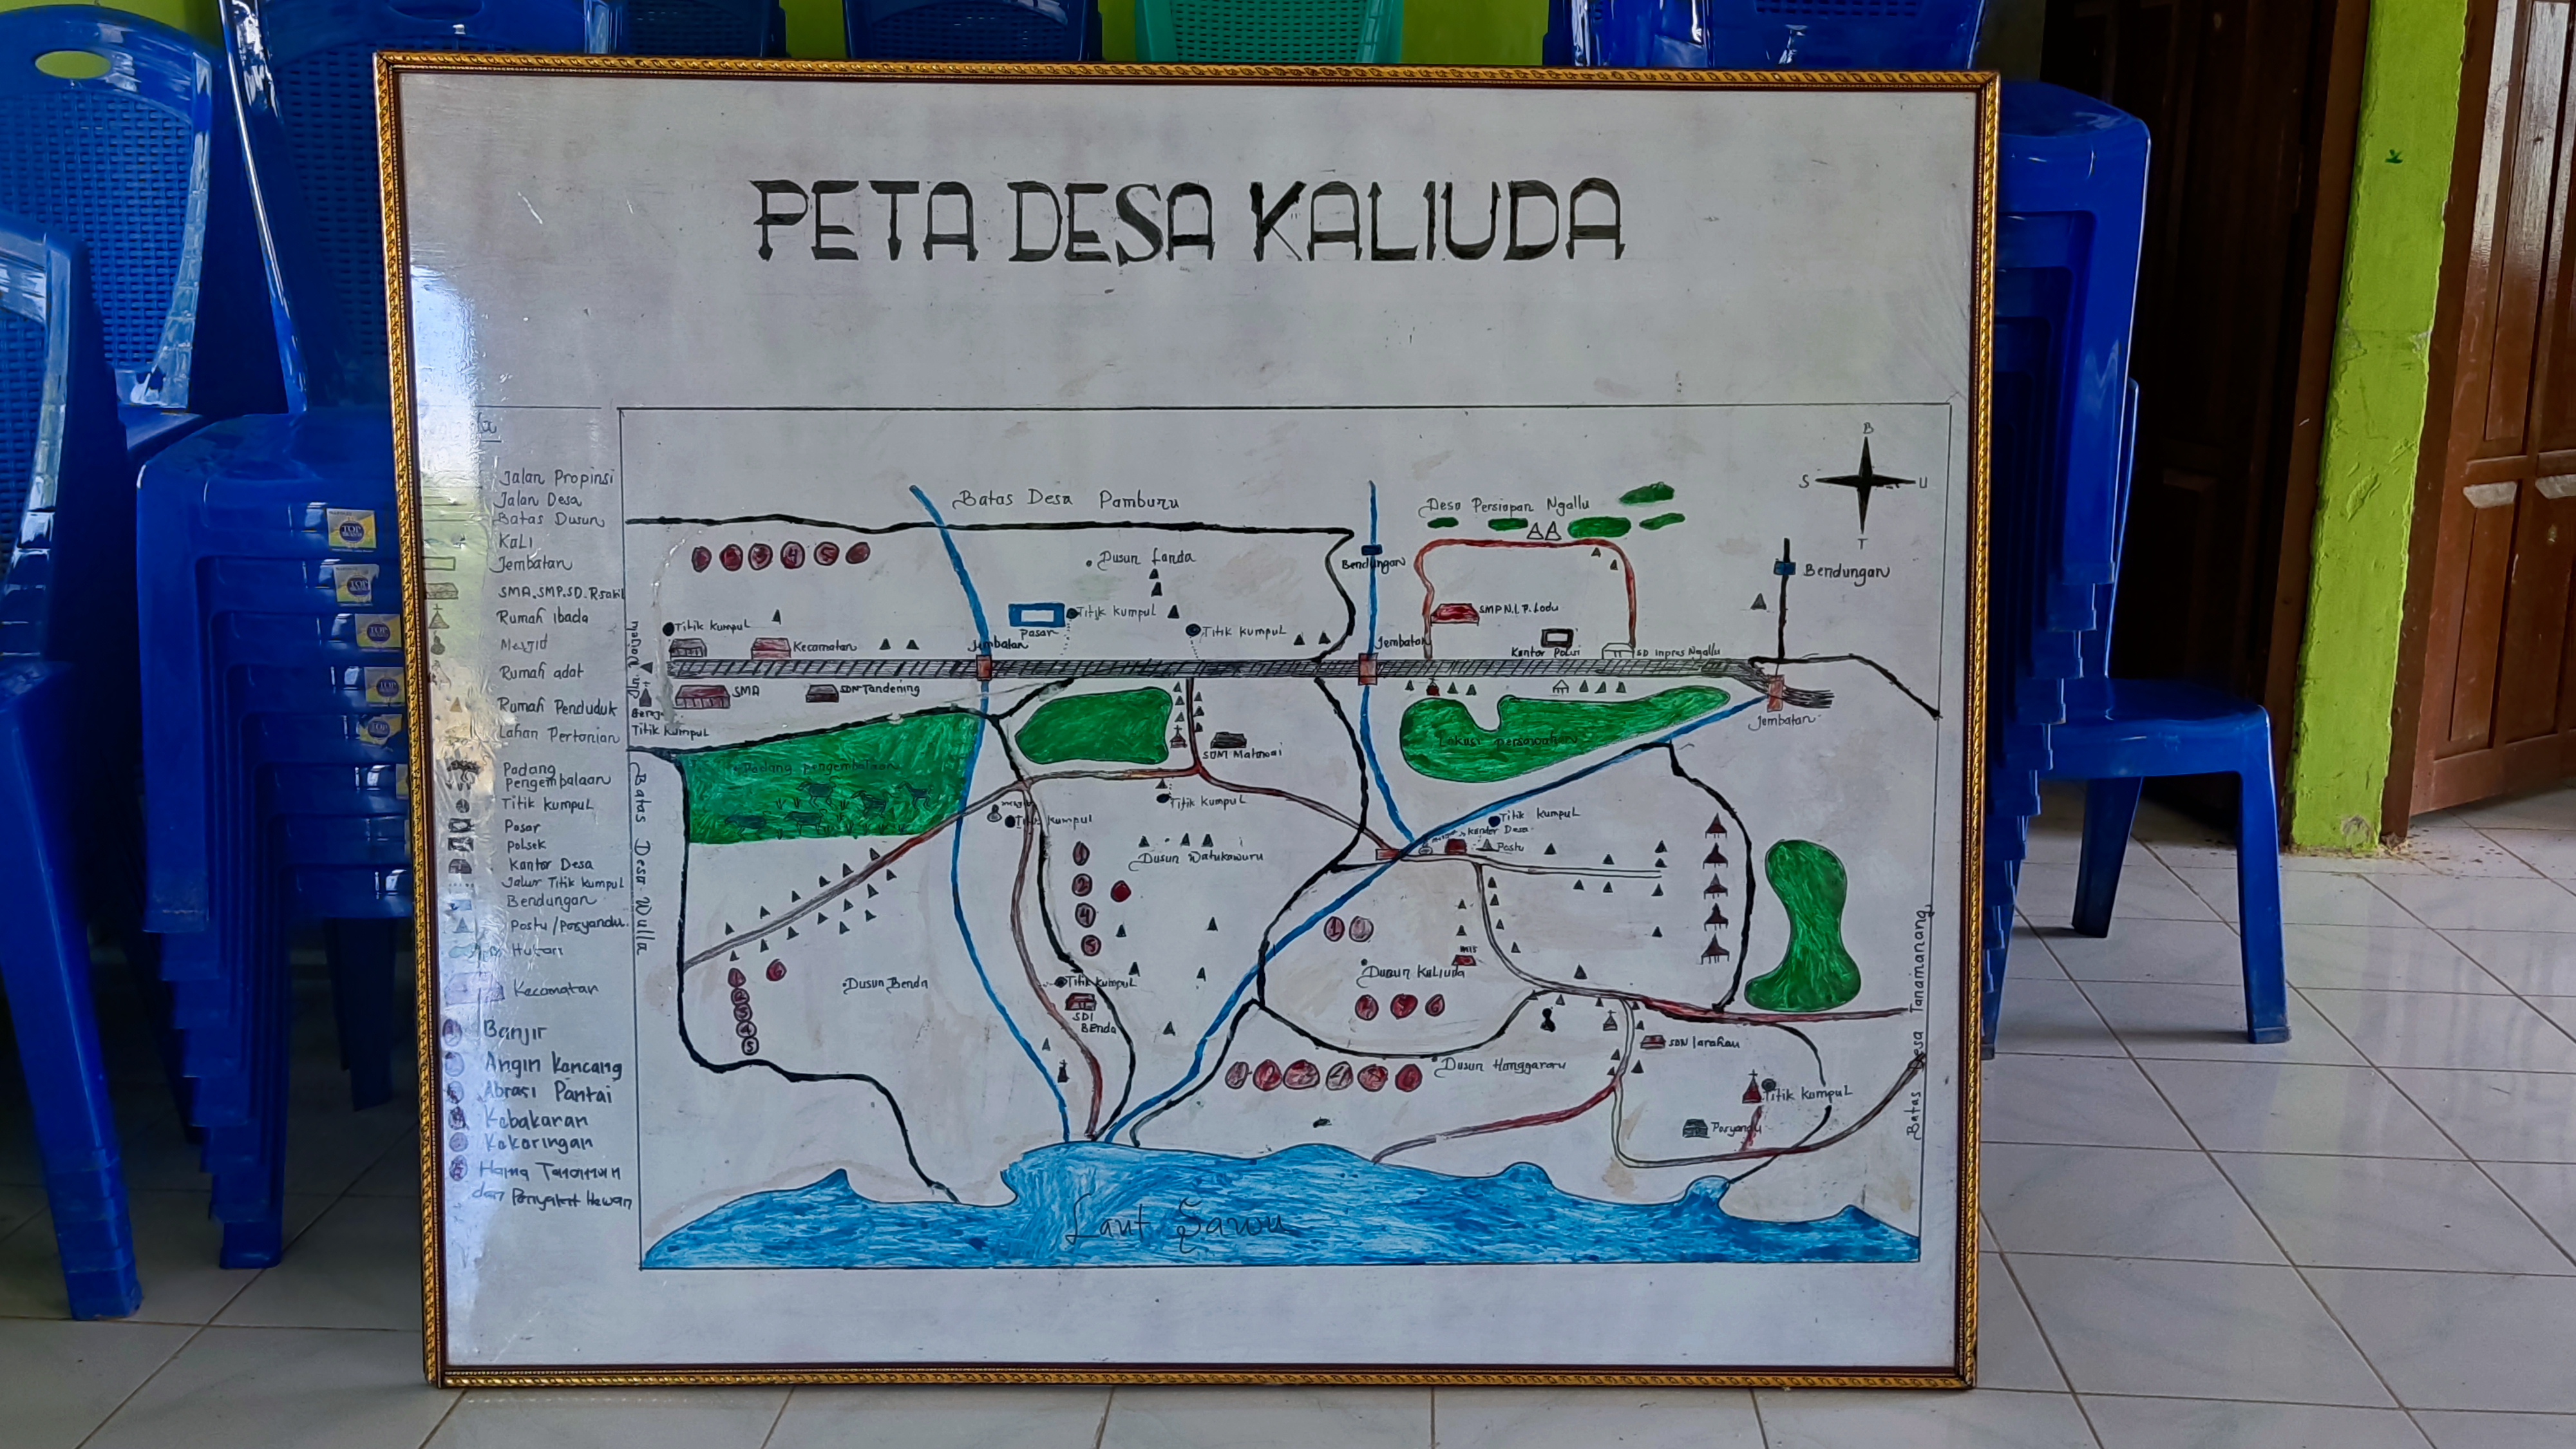 PETA DESA KALIUDA
Jalan Propinsi
Jalan Desa
Batas Dusun
KaLI
Jembatan
SMA. SMP. SD.
Rumah ibada
Mesjid
Rumah adat
Rumah Penduduk
Lahan Pertanian
Padang
Pengembalaan
Titik Kumpul
Pasar
Polsek
Kantor Desa
Jalur Titik Kumpul
Bendungan
Postu / Posyandu
Hutan
Kecamatan
Banjir
Angin Kencang
Abrasi Pantai
Kebakaran
Kekeringan
Hama Tanaman
dan Penyakit Hewan
B
S U
T
Batas Desa Pamburu
Desa Persiapan Ngallu
Bendungan
Bendungan
Dusun Landa
Titik Kumpul
Pasar
Titik Kumpul
Titik Kumpul
Kecamatan
Jembatan
Jembatan
SMP N.I.P. Lodu
Kantor Polisi
SD Inpres Ngallu
SMA
SDN Tandening
Titik Kumpul
Jembatan
Lokasi persawahan
SDM Matawai
Padang pengembalaan
Titik Kumpul
Titik Kumpul
Titik Kumpul
Kantor Desa
Postu
Dusun Watukawuru
Batas Desa Wulla
Dusun Benda
Titik Kumpul
SDI
Benda
MIS
Dusun Kaliuda
SDN Larahau
Dusun Hanggaroru
Titik Kumpul
Posyandu
Batas Desa Tanamanang
Laut Sawu